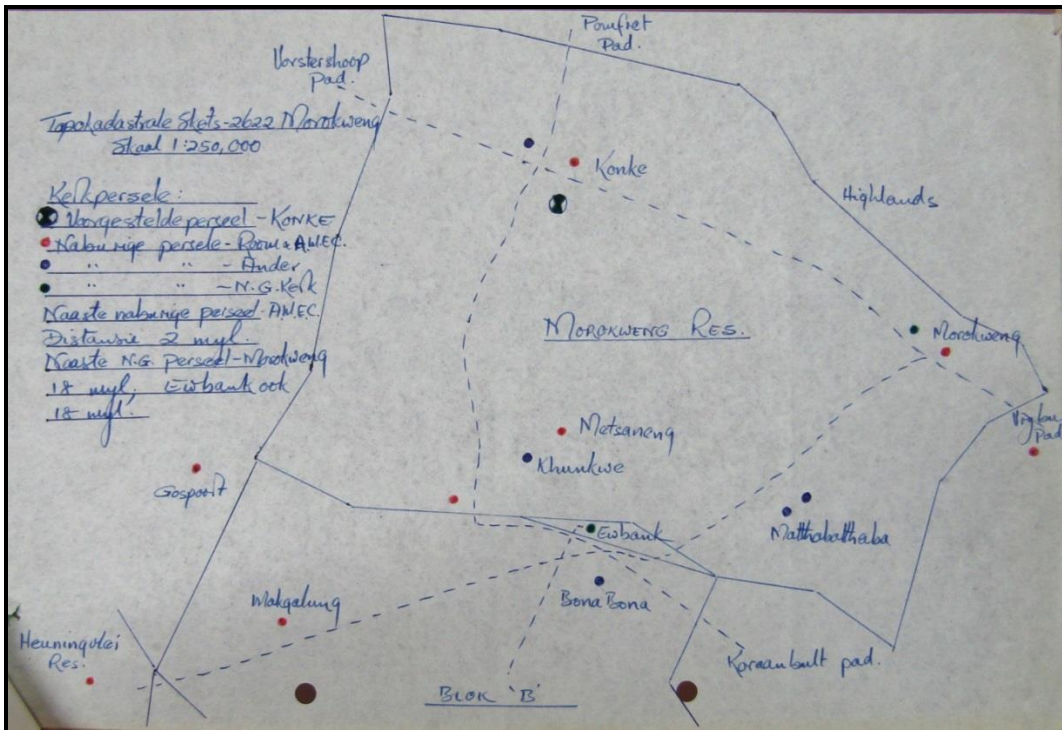 Pomfret
Pad.
Vorstershoop
Pad.
Topokadastrale Skets-2622 Morokweng
Skaal 1:250,000
Kerkpersele:
Voorgestelde perseel - KONKE
Naburige persele - Room & A.M.E.C.
" " - Ander
" " - N.G. Kerk
Naaste naburige perseel - A.M.E.C.
Distansie 2 myl.
Naaste N.G. perseel - Morokweng
18 myl, Ewbank ook
18 myl.
Konke
Highlands
MOROKWENG RES.
Morokweng
Pad
Metsaneng
Khunkwe
Gospoort
Ewbank
Matthabatthaba
Bona Bona
Makgalung
Heuningvlei
Res.
pad.
BLOK 'B'